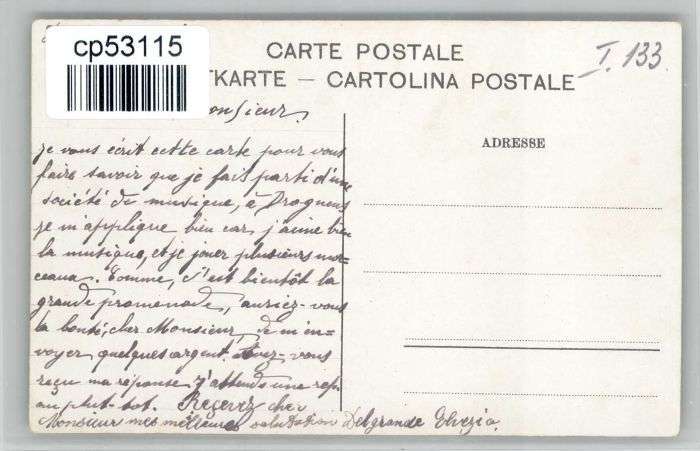 cp53115
I. 133
CARTE POSTALE
TKARTE — CARTOLINA POSTALE
onsieur,
ADRESSE
je vous écrit cette carte pour vous
faire savoir que je fait parti d'une
société de musique, à Drognens
je m'applique bien car, j'aime bien
la musique, et je jouer plusieurs mor-
ceaux. Comme, c'est bientôt la
grande promenade, auriez-vous
la bonté, cher Monsieur, de m'en-
voyer quelques argent. Avez-vous
reçu ma réponse. J'attends une rep.
au plut-tot. Reçevez cher
Monsieur mes meilleures salutation Delgrande Elvezio.